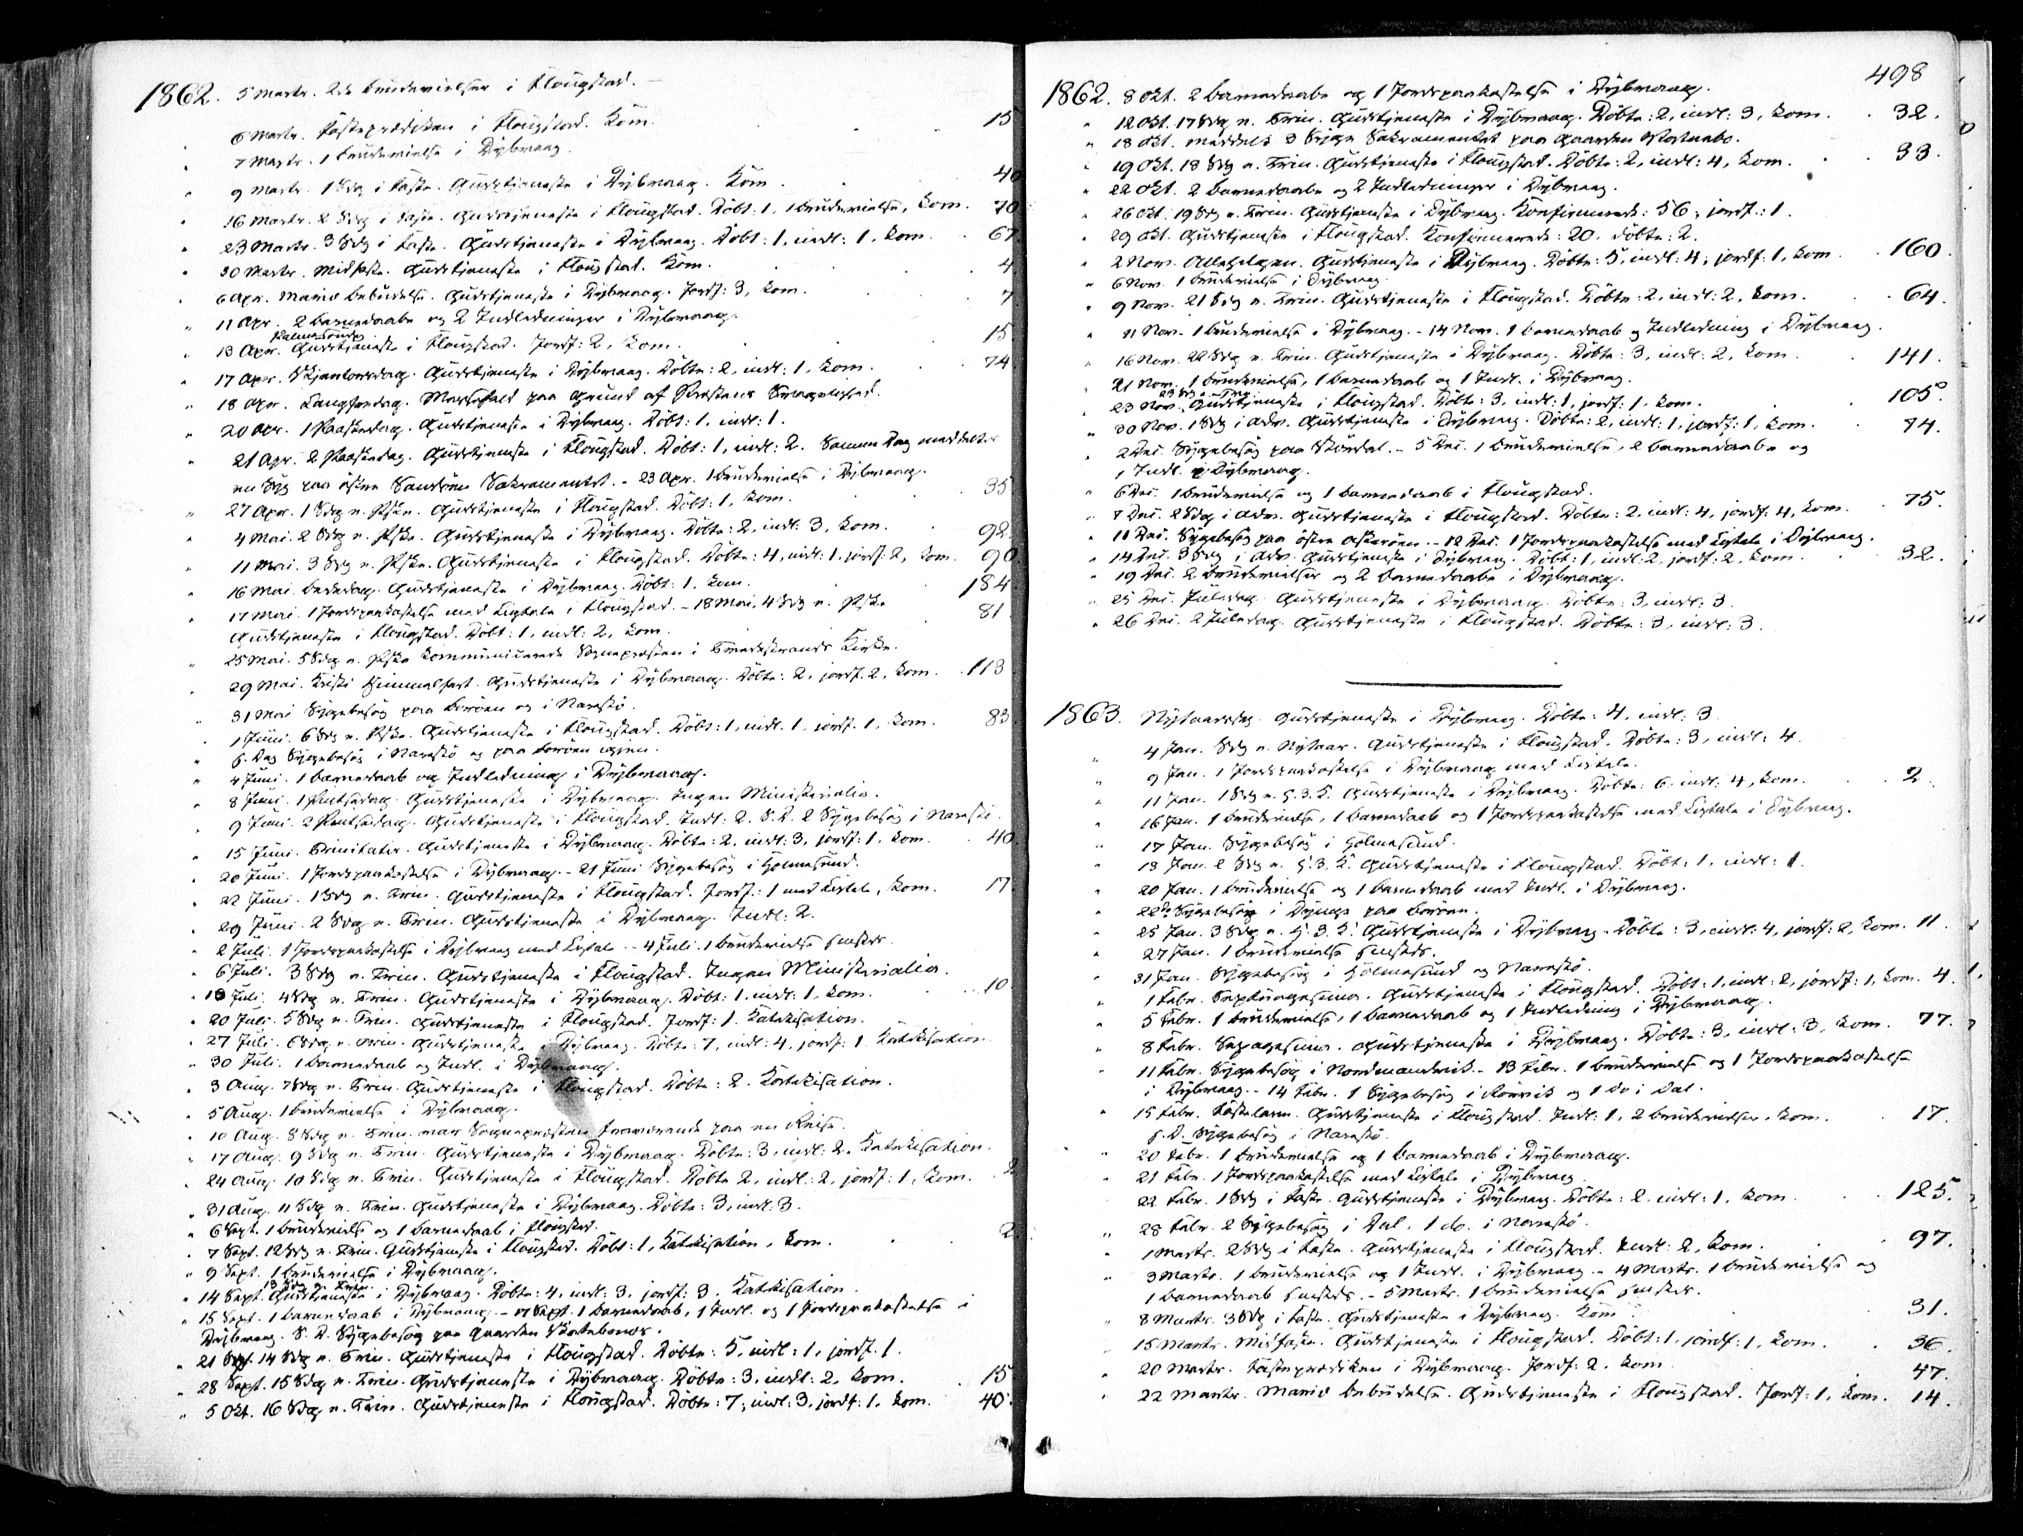 1862. 5 Marts. 2de Brudevielser i Flougstad.
6 Marts. Fasteprædiken i Flougstad. Kom. 15
7 Marts. 1 Brudevielse i Dybvaag.
9 Marts. 1 Sdg i Faste. Gudstjeneste i Dybvaag. Kom. 40
16 Marts. 2 Sdg i Faste. Gudstjeneste i Flougstad. Döbt: 1, 1 Brudevielse, Kom. 70
23 Marts. 3 Sdg i Faste. Gudstjeneste i Dybvaag. Döbt: 1, indl: 1, Kom. 67
30 Marts. Midfaste. Gudstjeneste i Flougstad. Kom. 4
6 Apr. Mariæ Bebudelse. Gudstjeneste i Dybvaag. Jordf: 3, Kom. 7
11 Apr. 2 Barnedaabe og 2 Indledninger i Dybvaag.
Palmesöndag
13 Apr. Gudstjeneste i Flougstad. Jordf: 2, Kom. 15
17 Apr. Skjærtorsdag. Gudstjeneste i Dybvaag. Döbte: 2, indl: 1, Kom. 74
18 Apr. Langfredag. Messefald paa Grund af Præstens Svagelighed.
20 Apr. 1 Paaskedag. Gudstjeneste i Dybvaag. Döbt: 1, indl: 1.
21 Apr. 2 Paaskedag. Gudstjeneste i Flougstad. Döbt: 1, indl: 2. Samme Dag meddeltes
en Syg paa östre Sandöen Sakramentet. - 23 Apr. 1 Brudevielse i Dybvaag.
27 Apr. 1 Sdg e. Pske. Gudstjeneste i Flougstad. Döbt: 1, Kom. 35
4 Mai. 2 Sdg e. Pske. Gudstjeneste i Dybvaag. Döbte: 2, indl: 3, Kom. 92
11 Mai. 3 Sdg e. Pske. Gudstjeneste i Flougstad. Döbte: 4, indl: 1, jordf: 2, Kom. 90
16 Mai. Bededag. Gudstjeneste i Dybvaag. Döbt: 1. Kom. 184
17 Mai. 1 Jordspaakastelse med Ligtale i Flougstad. - 18 Mai. 4 Sdg e. Pske
Gudstjeneste i Flougstad. Döbt: 1, indl: 2, Kom. 81
25 Mai. 5 Sdg e. Pske kommunicerede Sognepræsten i Tvedestrands Kirke.
29 Mai. Kristi Himmelfart. Gudstjeneste i Dybvaag. Döbte: 2, jordf. 2, Kom. 113
31 Mai Sygebesög paa Boröen og i Narestö.
1 Juni. 6 Sdg e. Pske. Gudstjeneste i Flougstad. Döbt: 1, indl. 1, jordf. 1, Kom. 83
S. Dag Sygebesög i Narestö og paa Boröen igjen.
4 Juni. 1 Barnedaab og Indledning i Dybvaag.
8 Juni. 1 Pintsedag. Gudstjeneste i Dybvaag. Ingen Ministerialia.
9 Juni. 2 Pintsedag. Gudstjeneste i Flougstad. Indl: 2. S. D. 2 Sygebesög i Narestö.
15 Juni. Trinitatis. Gudstjeneste i Dybvaag. Döbte: 2, indl: 3, jordf: 1, Kom. 40
20 Juni. 1 Jordspaakastelse i Dybvaag. - 21 Juni Sygebesög i Holmesund.
22 Juni. 1 Sdg e. Trin. Gudstjeneste i Flougstad. Jordf: 1 med Ligtale, Kom. 17
29 Juni. 2 Sdg e. Trin. Gudstjeneste i Dybvaag. Indl: 2.
2 Juli. 1 Jordspaakastelse i Dybvaag med Ligtale. - 4 Juli. 1 Brudevielse smsteds.
6 Juli. 3 Sdg e. Trin. Gudstjeneste i Flougstad. Ingen Ministerialia.
13 Juli. 4 Sdg e. Trin. Gudstjeneste i Dybvaag. Döbt: 1, indl: 1, Kom. 10
20 Juli. 5 Sdg e. Trin. Gudstjeneste i Flougstad. Jordf: 1. Katekisation.
27 Juli. 6 Sdg e. Trin. Gudstjeneste i Dybvaag. Döbte: 7, indl: 4, jordf: 1 Katekisation
30 Juli. 1 Barnedaab og Indl. i Dybvaag.
3 Aug. 7 Sdg e. Trin. Gudstjeneste i Flougstad. Döbte: 2. Katekisation.
5 Aug. 1 Brudevielse i Dybvaag.
10 Aug. 8 Sdg e. Trin. var Sognepræsten fraværende paa en Reise.
17 Aug. 9 Sdg e. Trin. Gudstjeneste i Dybvaag. Döbte: 3, indl: 2. Katekisation.
24 Aug. 10 Sdg e. Trin. Gudstjeneste i Flougstad. Döbte 2, indl: 2, jordf: 1, Kom. 2
31 Aug. 11 Sdg e. Trin. Gudstjeneste i Dybvaag. Döbte: 3, indl. 3.
6 Sept. 1 Brudevielse og 1 Barnedaab i Flougstad.
7 Sept. 12 Sdg e. Trin. Gudstjeneste i Flougstad. Döbt: 1, Katekisation, Kom. 2
9 Sept. 1 Brudevielse i Dybvaag.
13 Sdg e. Trin.
14 Sept. Gudstjeneste i Dybvaag. Döbte: 4, indl: 3, jordf: 3. Katekisation.
15 Sept. 1 Barnedaab i Dybvaag. - Sept. 1 Barnedaab, 1 Indl. og 1 Jordspaakastelse i
Dybvaag. S. D. Sygebesög paa Gaarden
21 Sept. 14 Sdg e. Trin. Gudstjeneste i Flougstad. Döbte: 5, indl: 1, jordf. 1.
28 Sept. 15 Sdg e. Trin. Gudstjeneste i Dybvaag. Döbte: 3, indl: 2, Kom. 15
5 Okt. 16 Sdg e. Trin. Gudstjeneste i Flougstad. Döbte: 7, indl: 3, jordf: 1, Kom. 40.
498
1862. 8 Okt. 2 Barnedaabe og 1 Jordspaakastelse i Dybvaag.
12 Okt. 17 Sdg e. Trin. Gudstjeneste i Dybvaag. Döbte: 2, indl: 3, Kom. 32.
18 Okt. meddelt 3 Syge Sakramentet paa Gaarden
19 Okt. 18 Sdg e. Trin. Gudstjeneste i Flougstad. Döbte: 2, indl: 4, Kom. 33.
22 Okt. 2 Barnedaabe og 2 Indledninger i Dybvaag.
26 Okt. 19 Sdg e. Trin. Gudstjeneste i Dybvaag. Konfirmerede: 56, jordf: 1.
29 Okt. Gudstjeneste i Flougstad. Konfirmerede: 20. Döbte: 2.
2 Nov. Allehelgen. Gudstjeneste i Dybvaag. Döbte: 5, indl: 4, jordf: 1, Kom. 160.
6 Nov. 1 Brudevielse i Dybvaag
9 Nov. 21 Sdg e. Trin. Gudstjeneste i Flougstad. Döbte: 2, indl: 2, Kom. 64.
11 Nov. 1 Brudevielse i Dybvaag. - 14 Nov. 1 Barnedaab og Indledning i Dybvaag.
16 Nov. 22 Sdg e. Trin. Gudstjeneste i Dybvaag. Döbte: 3, indl: 2, Kom. 141.
21 Nov. 1 Brudevielse, 1 Barnedaab og 1 Indl. i Dybvaag.
23 Sdg e. Trin.
23 Nov. Gudstjeneste i Flougstad. Döbte: 3, indl: 1, jordf: 1, Kom. 105.
30 Nov. 1 Sdg i Adv. Gudstjeneste i Dybvaag. Döbte: 2, indl: 1, jordf: 1, Kom. 74.
2 Dec. Sygebesög paa - 5 Dec. 1 Brudevielse, 2 Barnedaabe og
1 Indl. i Dybvaag.
6 Dec. 1 Brudevielse og 1 Barnedaab i Flougstad.
7 Dec. 2 Sdg i Adv. Gudstjeneste i Flougstad. Döbte: 2, indl: 4, jordf: 4, Kom. 75.
11 Dec. Sygebesög paa östre - 12 Dec. 1 Jordspaakastelse med Ligtale i Dybvaag.
14 Dec. 3 Sdg i Adv. Gudstjeneste i Dybvaag. Döbt: 1, indl: 2, jordf: 2, Kom. 32.
19 Dec. 2 Brudevielser og 2 Barnedaabe i Dybvaag.
25 Dec. Juledag. Gudstjeneste i Dybvaag. Döbte: 3, indl: 3.
26 Dec. 2 Juledag. Gudstjeneste i Flougstad. Döbte: 3, indl: 3.
1863. Nytaarsdag. Gudstjeneste i Dybvaag. Döbte: 4, indl: 3
4 Jan. Sdg e. Nytaar. Gudstjeneste i Flougstad. Döbte: 3, indl: 4.
9 Jan. 1 Jordspaakastelse i Dybvaag med Ligtale.
11 Jan. 1 Sdg e. H. 3. K. Gudstjeneste i Dybvaag. Döbte: 6, indl: 4, Kom. 2
16 Jan. 1 Brudevielse, 1 Barnedaab og 1 Jordspaakastelse med Ligtale i Dybvaag.
17 Jan. Sygebesög i Holmesund.
18 Jan. 2 Sdg e. H. 3. K. Gudstjeneste i Flougstad. Döbt: 1, indl: 1.
20 Jan. 1 Brudevielse og 1 Barnedaab med Indl. i Dybvaag.
22 do Sygebesög i Dynge paa Boröen.
25 Jan. 3 Sdg e. H. 3. K. Gudstjeneste i Dybvaag. Döbte: 3, indl: 4, jordf: 2, Kom. 11.
27 Jan. 1 Brudevielse smsteds.
31 Jan. Sygebesög i Holmesund og Narestö.
1 Febr. Septuagesima. Gudstjeneste i Flougstad. Döbt: 1, indl: 2, jordf: 1, Kom. 4
5 Febr. 1 Brudevielse, 1 Barnedaab og 1 Indledning i Dybvaag.
8 Febr. Sexagesima. Gudstjeneste i Dybvaag. Döbte: 3, indl: 3, Kom. 77.
11 Febr. Sygebesög i Nordmandvik. - 13 Febr. 1 Brudevielse og 1 Jordspaakastelse
i Dybvaag. - 14 Febr. 1 Sygebesög i og 1 Do i Dal.
15 Febr. Fastelavn. Gudstjeneste i Flougstad. Indl: 1, 2 Brudevielser, Kom. 17.
S. D. Sygebesög i Narestö.
20 Febr. 1 Brudevielse og 1 Barnedaab i Dybvaag.
21 Febr. 1 Jordspaakastelse med Ligtale i Dybvaag
22 Febr. 1 Sdg i Faste. Gudstjeneste i Dybvaag. Döbte: 2, indl: 1, Kom. 125.
28 Febr. 2 Sygebesög i Dal, 1 do. i Narestö.
1 Marts. 2 Sdg i Faste. Gudstjeneste i Flougstad. Indl: 2, Kom. 97.
3 Marts. 1 Brudevielse og 1 Indl. i Dybvaag. - 4 Marts. 1 Brudevielse og
1 Barnedaab smsteds. - 5 Marts. 1 Brudevielse smsteds.
8 Marts. 3 Sdg i Faste. Gudstjeneste i Dybvaag. Kom. 31.
15 Marts. Midfaste. Gudstjeneste i Flougstad. Döbt: 1, jordf: 1, Kom. 36.
20 Marts. Fasteprædiken i Dybvaag. Jordf: 2. Kom. 47.
22 Marts. Mariæ Bebudelse. Gudstjeneste i Flougstad. Jordf: 1, Kom. 14.